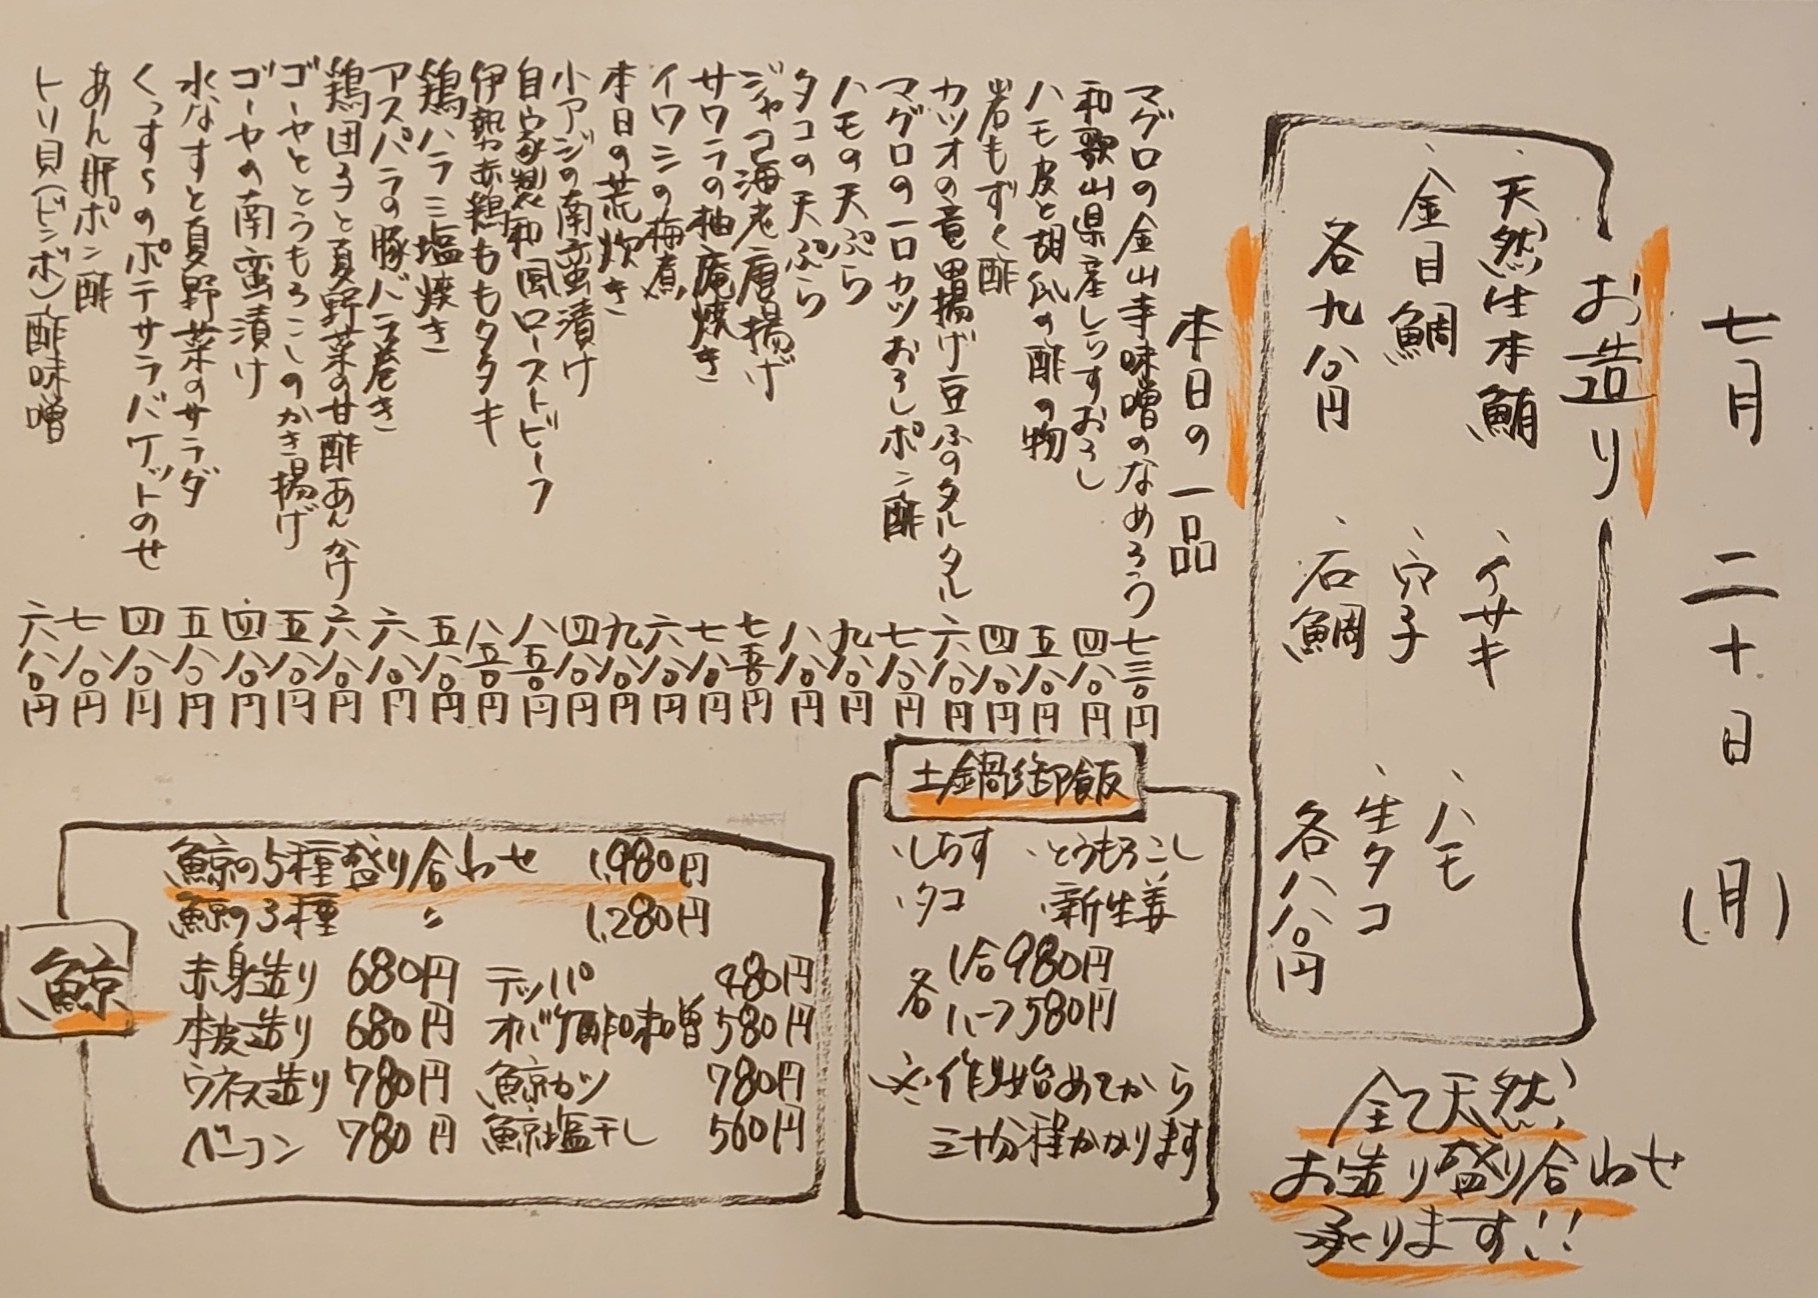 七月二十日(月)
お造り
、天然生本鮪
、金目鯛
各九八〇円
、イサキ
、穴子
、石鯛
、ハモ
、生タコ
各八八〇円
全て天然
お造り盛り合わせ
承ります!!
本日の一品
マグロの金山寺味噌のなめろう 七三〇円
和歌山県産しらすおろし 四八〇円
ハモ皮と胡瓜の酢の物 五八〇円
岩もずく酢 四八〇円
カツオの竜田揚げ豆ふのタルタル 六八〇円
マグロの一口カツおろしポン酢 七八〇円
ハモの天ぷら 九八〇円
タコの天ぷら 八八〇円
ジャコ海老唐揚げ 七五〇円
サワラの柚庵焼き 七八〇円
イワシの梅煮 六八〇円
本日の荒炊き 九八〇円
小アジの南蛮漬け 四八〇円
自家製和風ローストビーフ 八五〇円
伊勢赤鶏ももタタキ 八五〇円
鶏ハラミ塩焼き 五八〇円
アスパラの豚バラ巻き 六八〇円
鶏団子と夏野菜の甘酢あんかけ 六八〇円
ゴーヤととうもろこしのかき揚げ 五八〇円
ゴーヤの南蛮漬け 四八〇円
水なすと夏野菜のサラダ 五八〇円
くっすらのポテサラバケットのせ 四八〇円
あん肝ポン酢 七八〇円
トリ貝(ビンボ)酢味噌 六八〇円
土鍋御飯
・しらす ・とうもろこし
・タコ ・新生姜
各 1合980円
ハーフ580円
※作り始めてから
三十分程かかります
鯨
鯨の5種盛り合わせ 1,980円
鯨の3種 〃 1,280円
赤身造り 680円 テッパ 480円
本皮造り 680円 オバケ酢味噌 580円
ウネス造り 780円 鯨カツ 780円
ベーコン 780円 鯨塩干し 560円